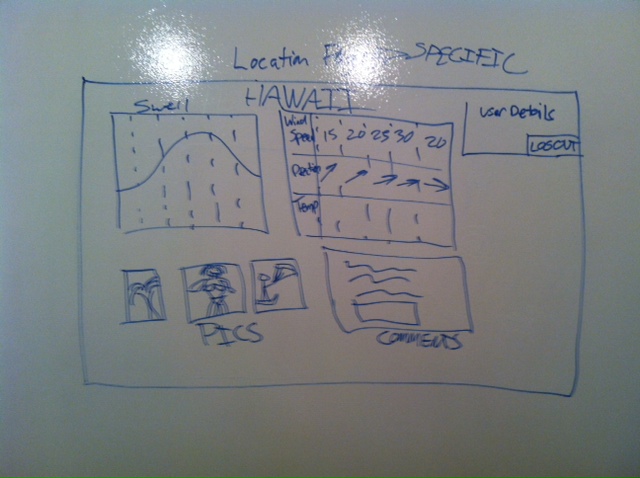 Location SPECIFIC
HAWAII
Swell
Wind
Speed 15 20 25 30 20
Temp
User Details
LOGOUT
PICS
COMMENTS